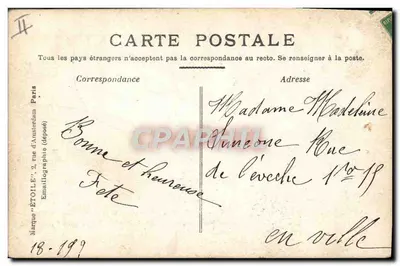 II
CARTE POSTALE
Tous les pays étrangers n'acceptent pas la correspondance au recto. Se renseigner à la poste.
Correspondance
Adresse
Bonne et heureuse
Fete
Madame Madeleine
Rue
de l'eveche
en ville
Marque "ÉTOILE", 2, rue d'Amsterdam Paris
Emaillographie (déposé)
18-199
CARTES